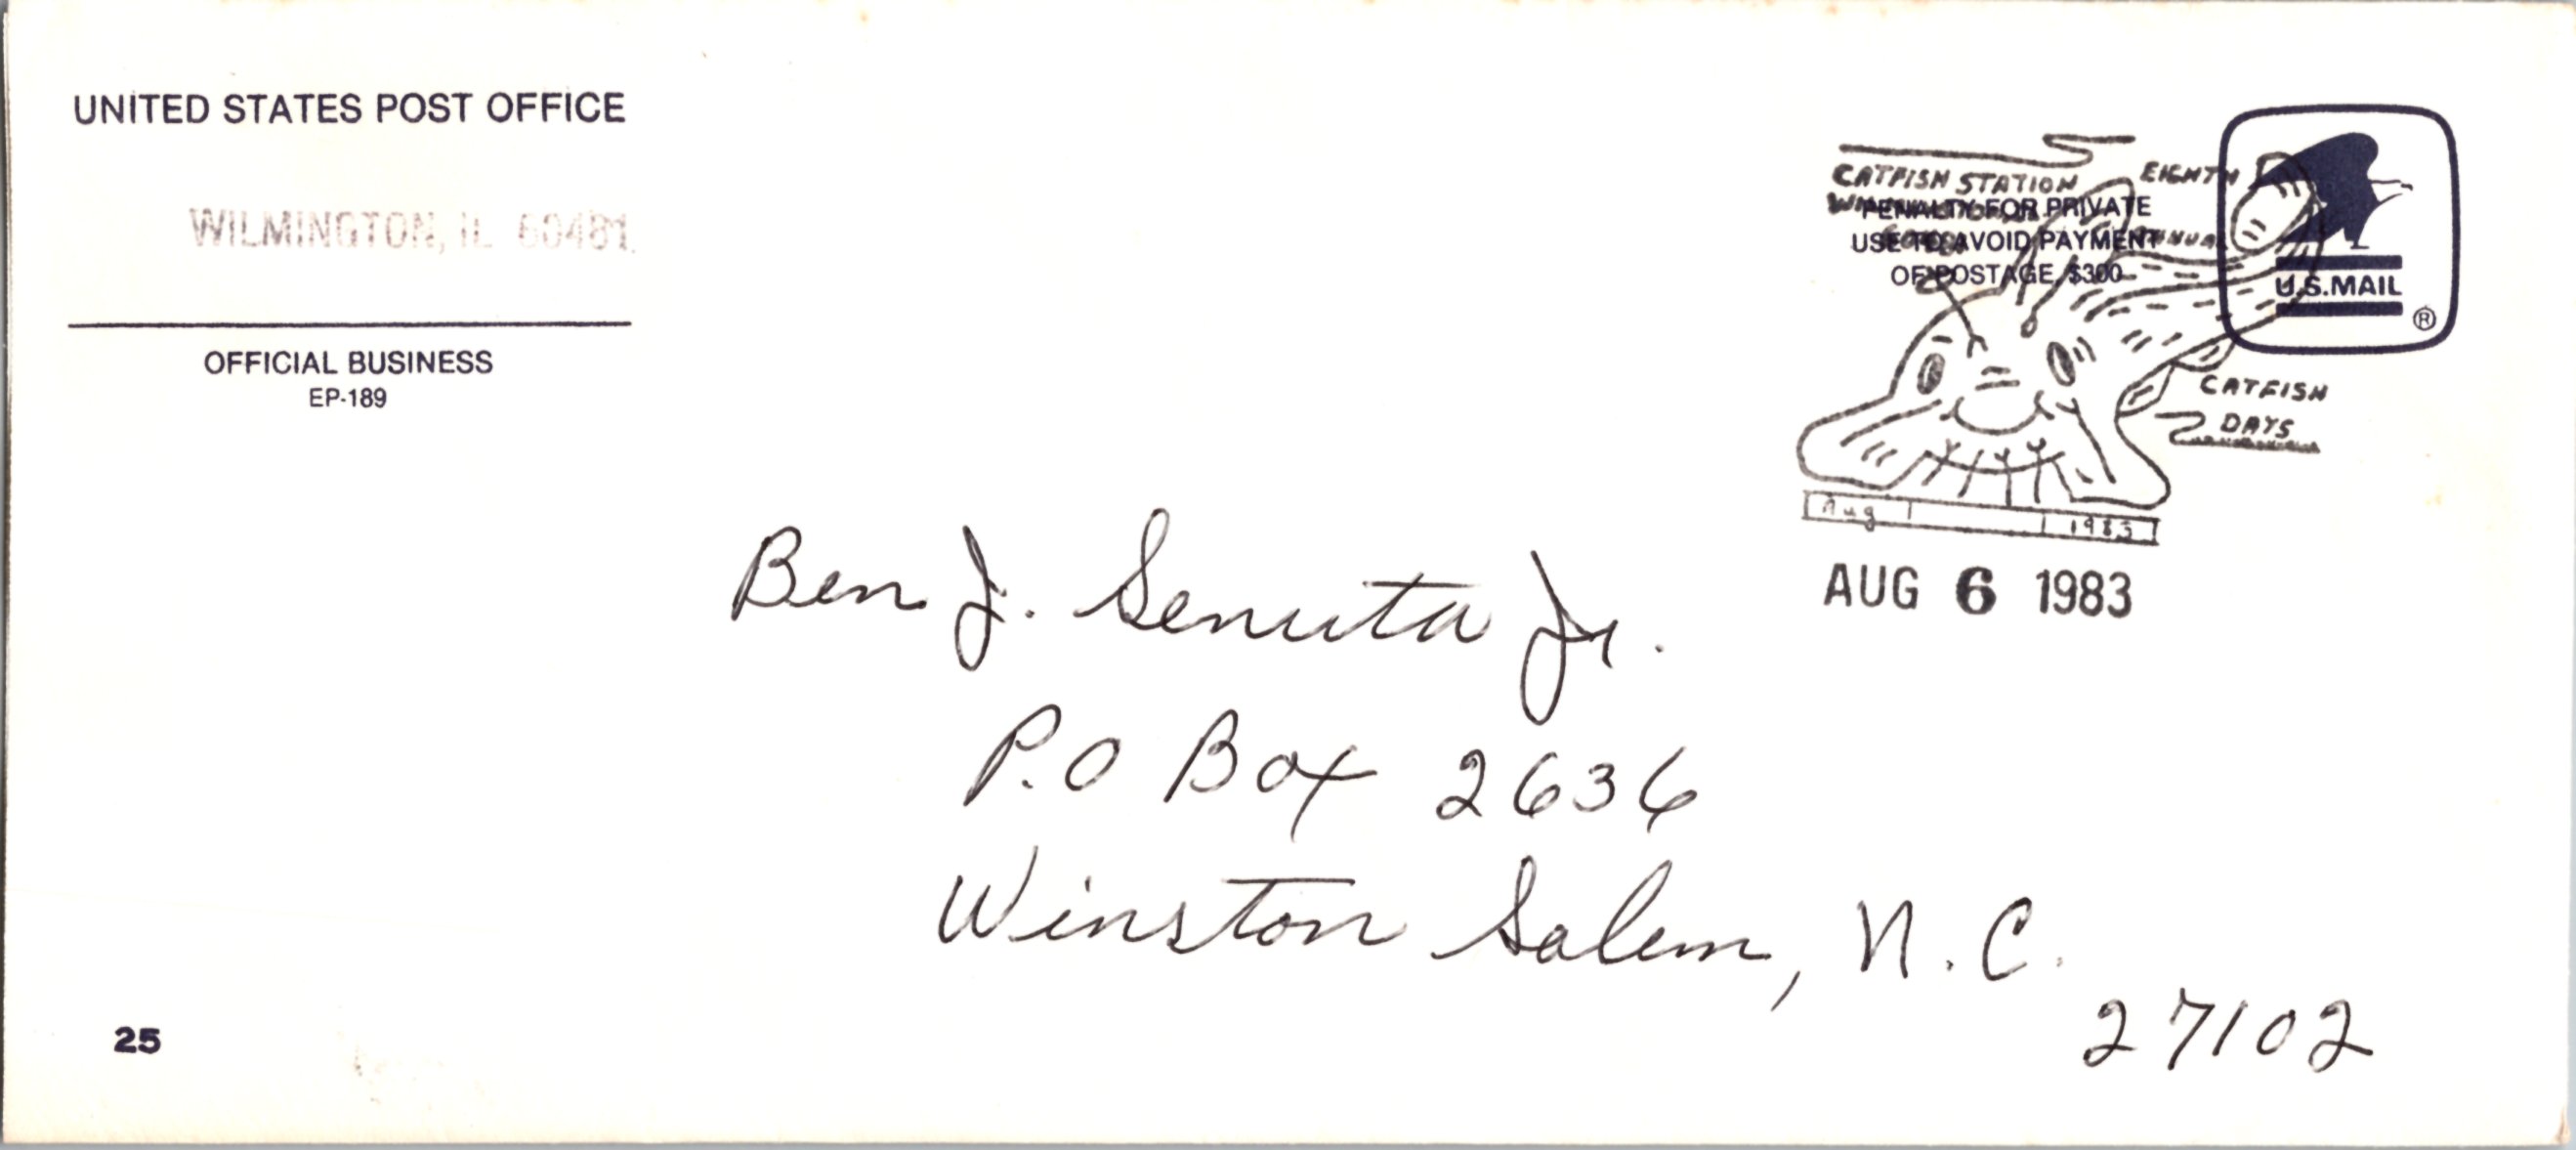 UNITED STATES POST OFFICE
WILMINGTON, IL 60481
OFFICIAL BUSINESS
EP-189
CATFISH STATION
EIGHTH
PENALTY FOR PRIVATE
USE TO AVOID PAYMENT
OF POSTAGE, $300
U.S.MAIL
®
CATFISH
DAYS
Aug 1983
AUG 6 1983
Ben J. Senuta Jr.
P.O Box 2636
Winston Salem, N.C.
27102
25